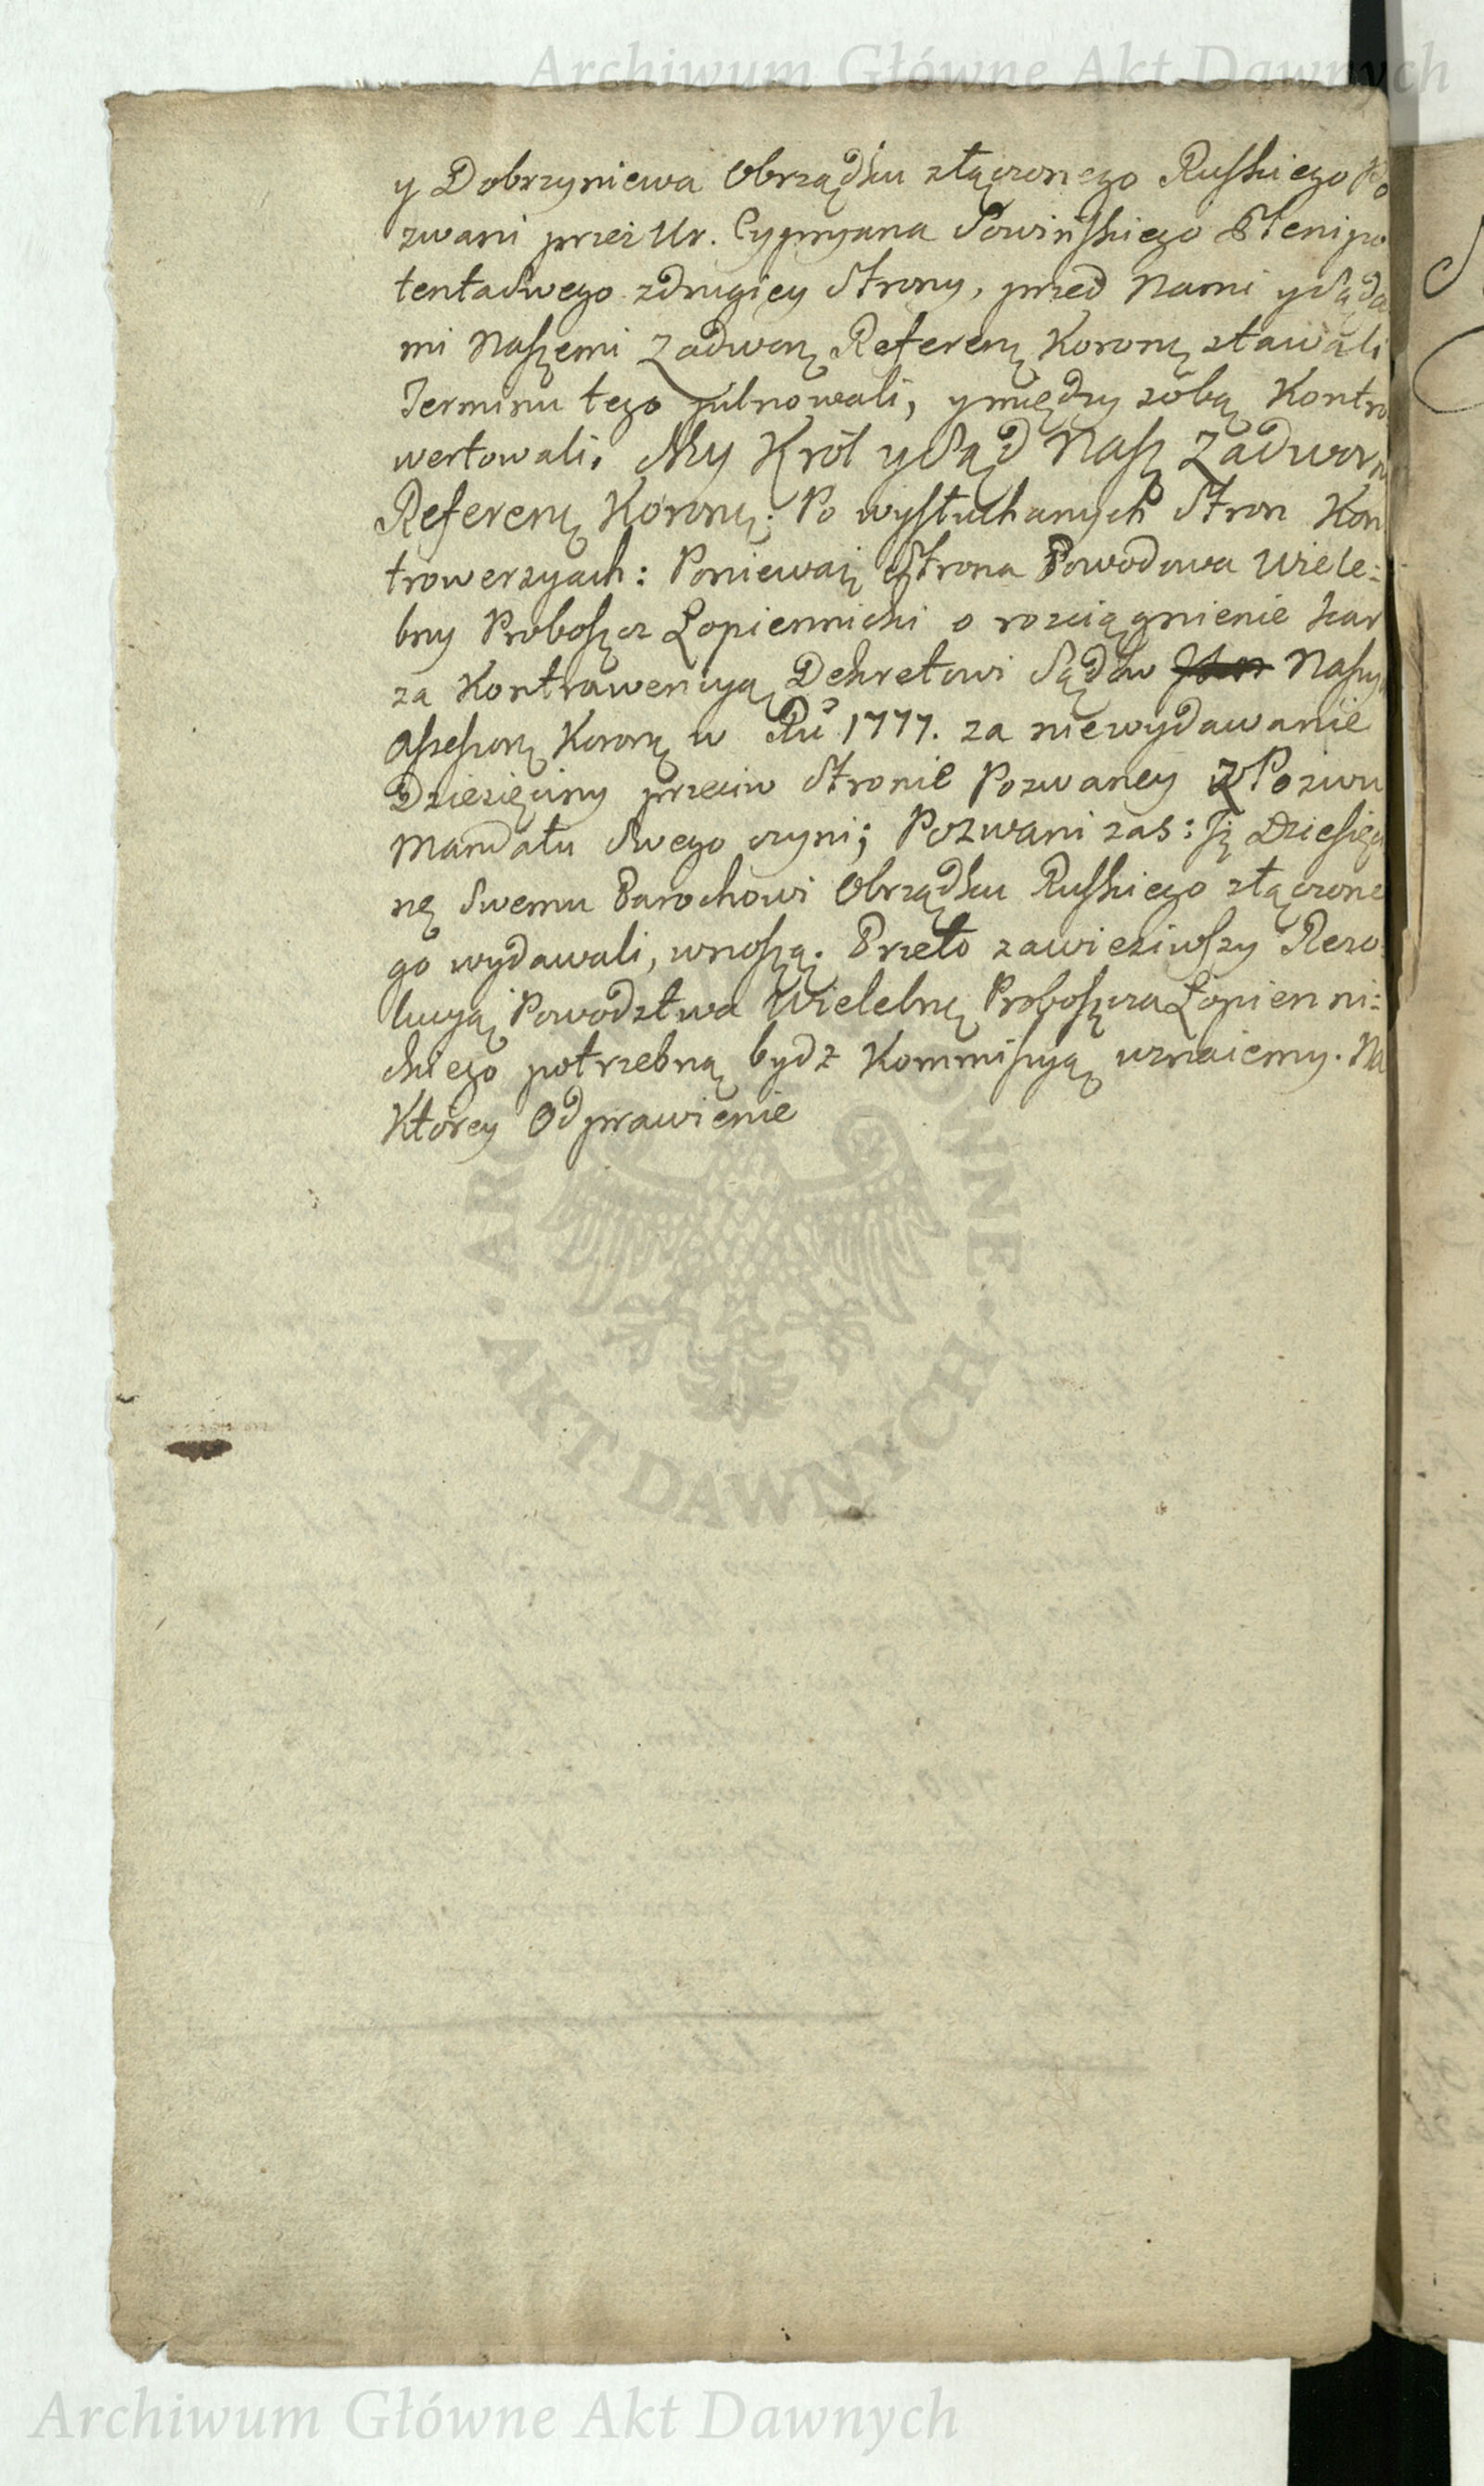 Archiwum Główne Akt Dawnych
y Dobrzyniewa Obrządku złączonego Ruskiego Po
zwani przez Ur. Cypryana Sowińskiego Plenipo
tenta swego z drugiey Strony, przed Nami y Sąda
mi Naszemi Zadwor: Referen: Koron: stawali
Terminu tego pilnowali, y między sobą Kontro
wertowali. My Król y Sąd Nasz Zadworn
Referen: Koron: Po wysłuchanych Stron Kon
trowersyach: Ponieważ Strona Powodowa Wiele:
bny Proboszcz Łopiennicki o rozciągnienie kar
za Kontrawencyą Dekretowi Sądów Naszy
Assessor: Koron: w Ru 1777. za niewydawanie
Dziesięciny przeciw Stronie Pozwaney z Pozwu
Mandatu Swego czyni; Pozwani zas: Iż Dziesięci
nę Swemu Parochowi Obrządku Ruskiego złączone
go wydawali, wnoszą. Przeto zawiesiwszy Rezo
lucyą Powodztwa Wielebn: Proboszcza Łopienni:
ckiego potrzebną bydz Kommissyą uznaiemy. Na
Ktorey Odprawienie
ARC
ÓWNE
· AKT DAWNYCH ·
Archiwum Główne Akt Dawnych